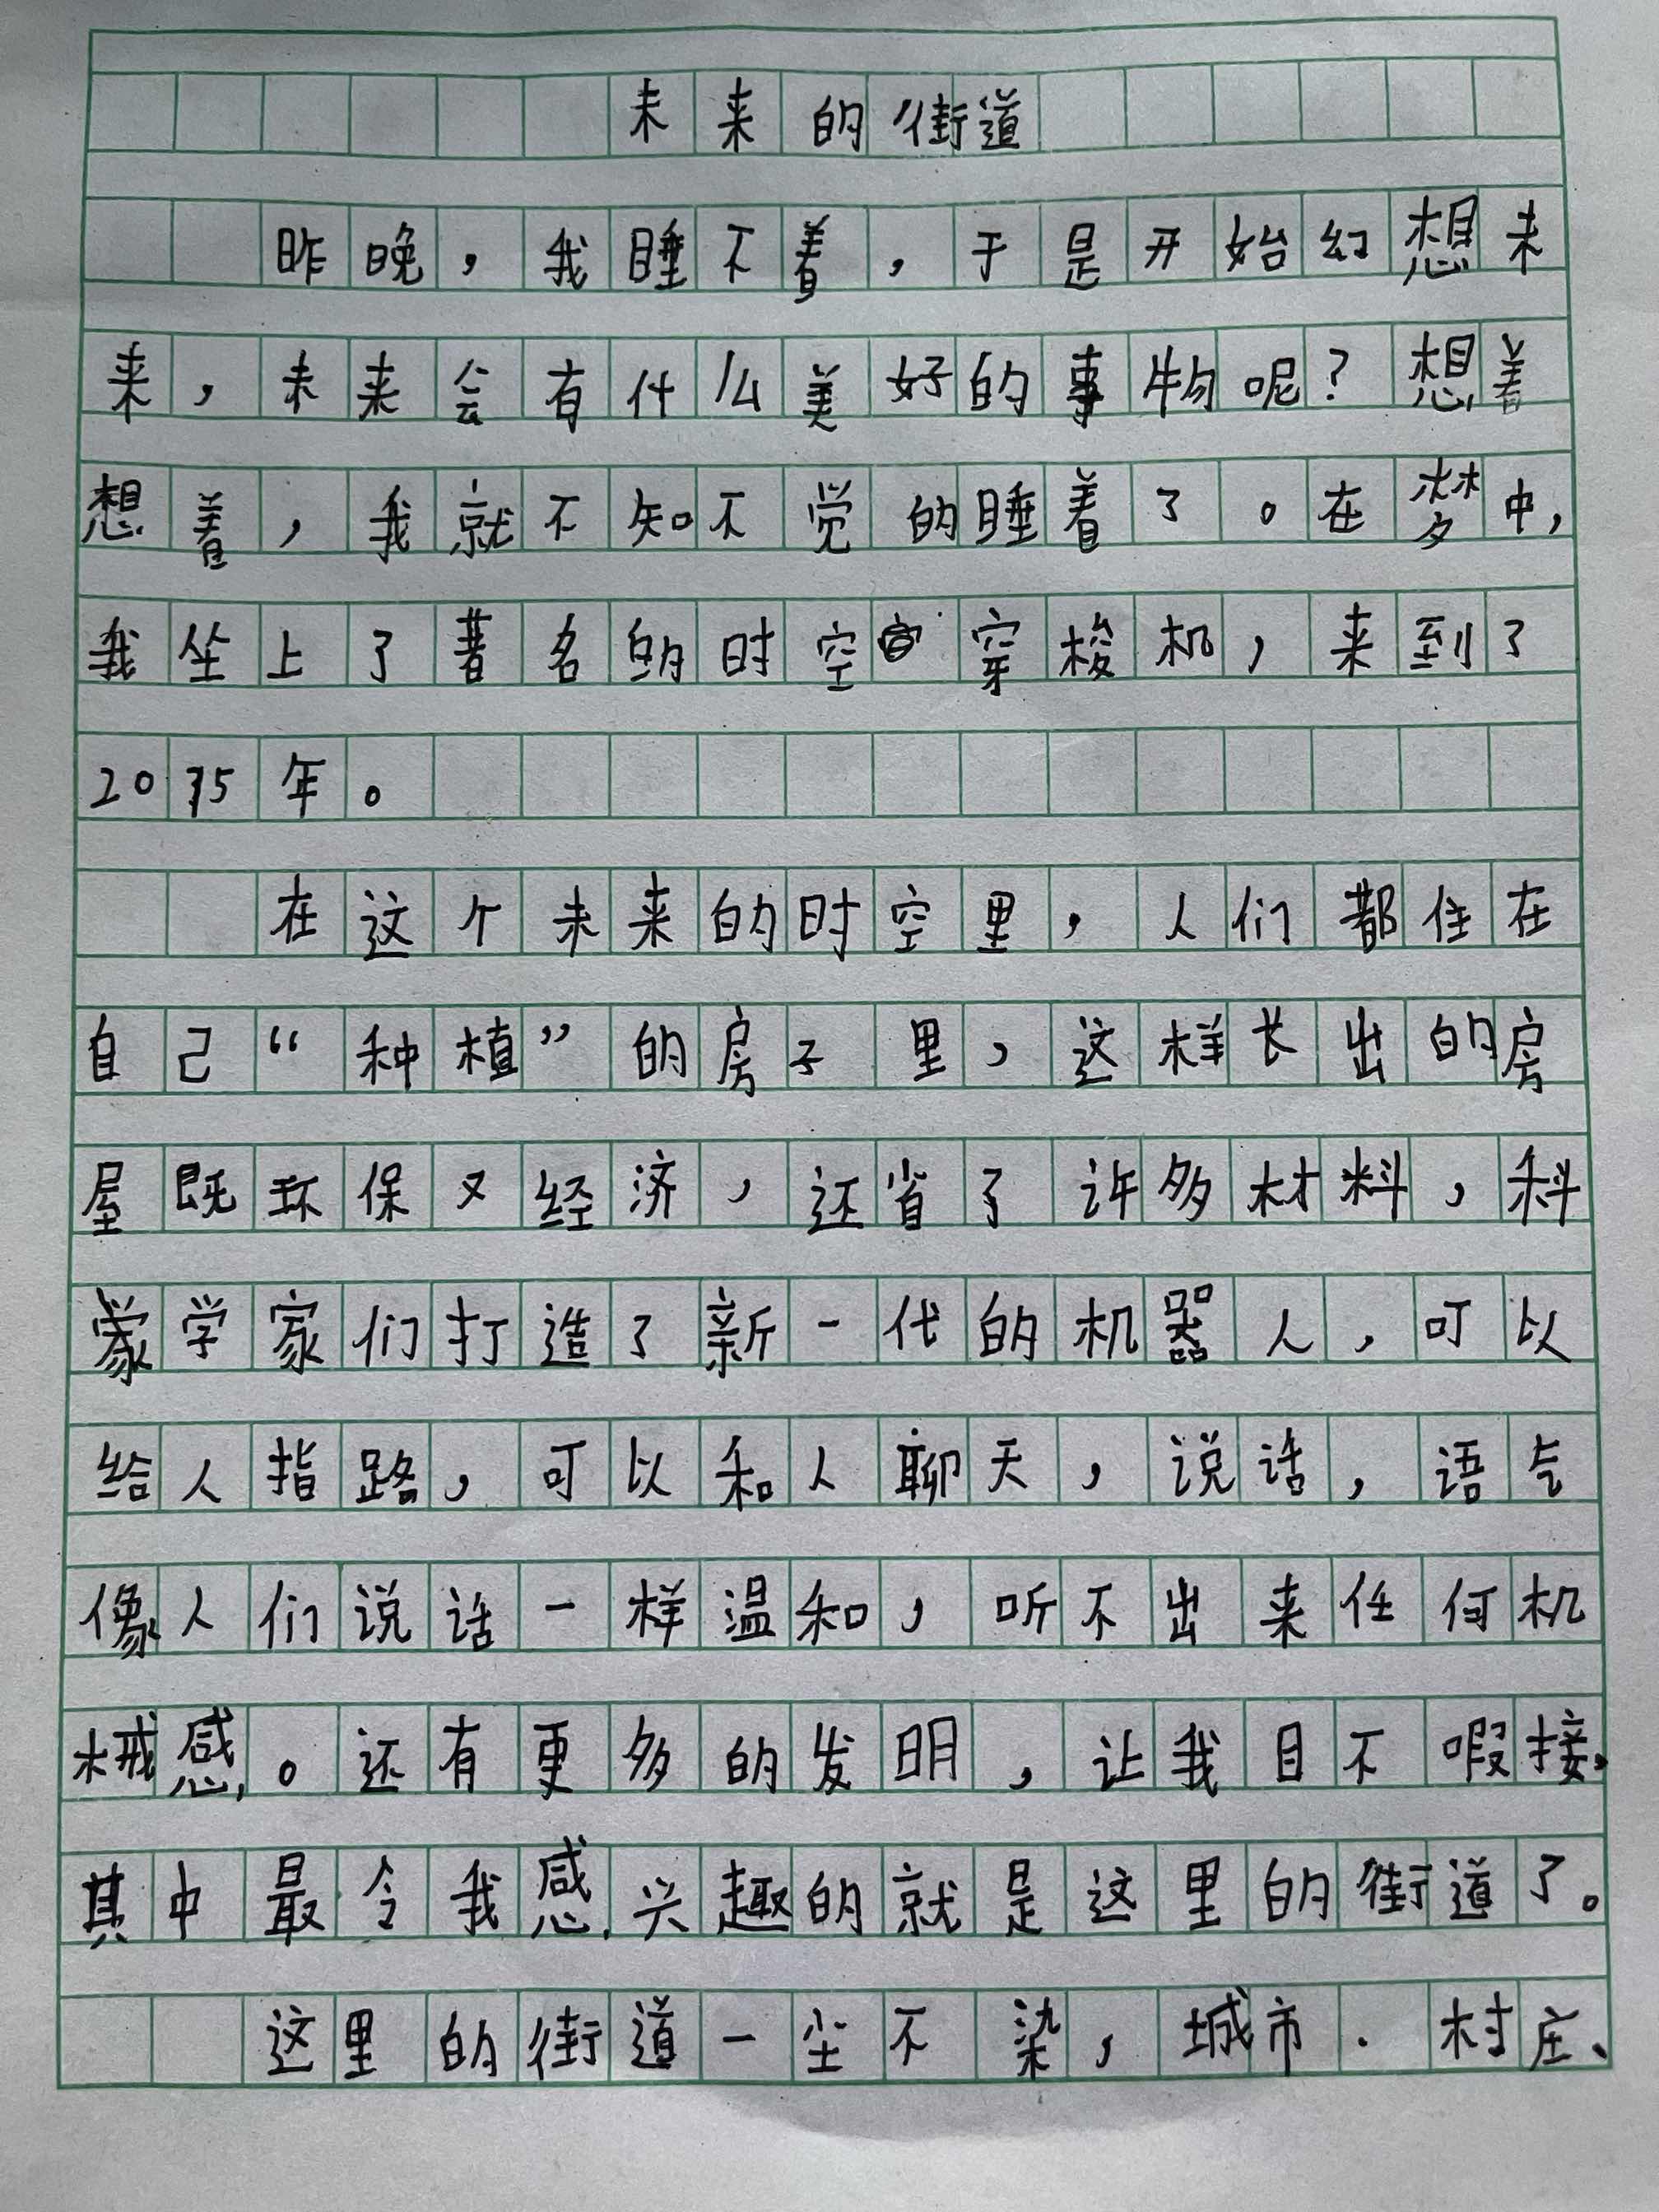 未来的街道
昨晚，我睡不着，于是开始幻想未
来，未来会有什么美好的事物呢？想着
想着，我就不知不觉的睡着了。在梦中，
我坐上了著名的时空穿梭机，来到了
2035年。
在这个未来的时空里，人们都住在
自己“种植”的房子里，这样长出的房
屋既环保又经济，还省了许多材料，科
学家们打造了新一代的机器人，可以
给人指路，可以和人聊天，说话，语气
像人们说话一样温和，听不出来任何机
械感。还有更多的发明，让我目不暇接，
其中最令我感兴趣的就是这里的街道了。
这里的街道一尘不染，城市、村庄、